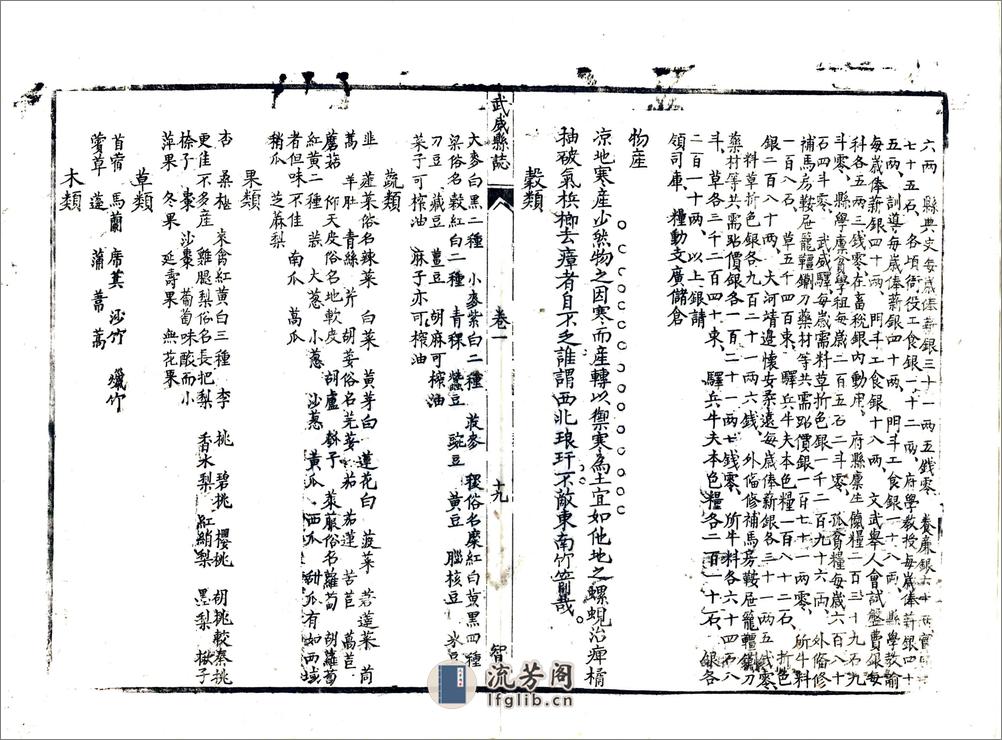 六兩 縣典史每歲俸薪銀三十一兩五錢零 養廉銀六十兩
七十五石 各項衙役工食銀一十二兩 府學教授每歲俸薪銀四十
五兩 訓導每歲俸薪銀四十兩 門斗工食銀一十八兩 縣學教諭
每歲俸薪銀四十兩 門斗工食銀十八兩 文武舉人會試盤費銀每
科各五兩三錢零在畜稅銀內動用 府縣廩生餼糧二百三十九石九
斗零 縣學廩貧學租每歲二百五石二斗零 孤貧糧每歲六百八十
石四斗零 武威驛每歲需料草折色銀一千二百九十六兩 外俻修
補馬房鞍屉籠轡鍘刀藥材等共需貼價銀一百七十一兩零 所牛料
一百八石 草五千四百束 驛兵牛夫本色糧一百八十二石 折色
銀二百八十兩 大河靖邊懷安柔遠每歲俸薪銀各三十一兩五錢零
料草折色銀各九百二十一兩六錢 外俻修補馬房鞍屉籠轡鍘刀
藥材等共需貼價銀各一百二十一兩七錢零 所牛料各六十四石八
斗 草各三千二百四十束 驛兵牛夫本色糧各二百一十石 銀各
二百一十兩 以上銀請
領司庫 糧動支廣儲倉
物産
涼地寒産少然物之因寒而産轉以禦寒為土宜如他地之螺蜆治痺橘
柚破氣梹榔去瘴者自不乏誰謂西北琅玕不敵東南竹箭哉
穀類
大麥白黑二種 小麥紫白二種 莜麥 稷俗名糜紅白黃黑四種
梁俗名穀紅白二種 青稞 蠶豆 豌豆 黃豆 腦核豆 氷豆
刀豆 藏豆 薑豆 胡麻可榨油
菜子可榨油 麻子亦可榨油
蔬類
韭 薤菜俗名辣菜 白菜 黃芽白 蓮花白 菠菜 莙薘菜 茼
蒿 羊肚 青絲 芹 胡荽俗名芫荽 茄 茄蓮 苦苣 萵苣
蘑菇 仰天皮俗名地軟皮 胡盧 斜子 萊菔俗名蘿蔔 胡蘿蔔
紅黃二種 蒜 大蔥 小蔥 沙蔥 黃瓜 西瓜 甜瓜有如西域
者但味不佳 南瓜 萵瓜
稍瓜 芝麻梨
果類
杏 桑椹 來禽紅黃白三種 李 桃 碧桃 櫻桃 胡桃較秦桃
更佳不多産 雞腿梨俗名長把梨 香水梨 紅綃梨 墨梨 楸子
榇子 棗 沙棗 葡萄味酸而小
蘋果 冬果 延壽果 無花果
草類
苜蓿 馬蘭 席萁 沙竹 蠟竹
薆草 蓬 蒲 蓍 蒿
木類
武威縣誌
卷一
十九
智
流芳阁
lfglib.cn